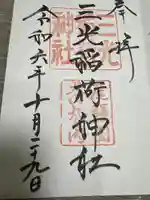 奉拝
三光稲荷神社
令和六年十月二十九日